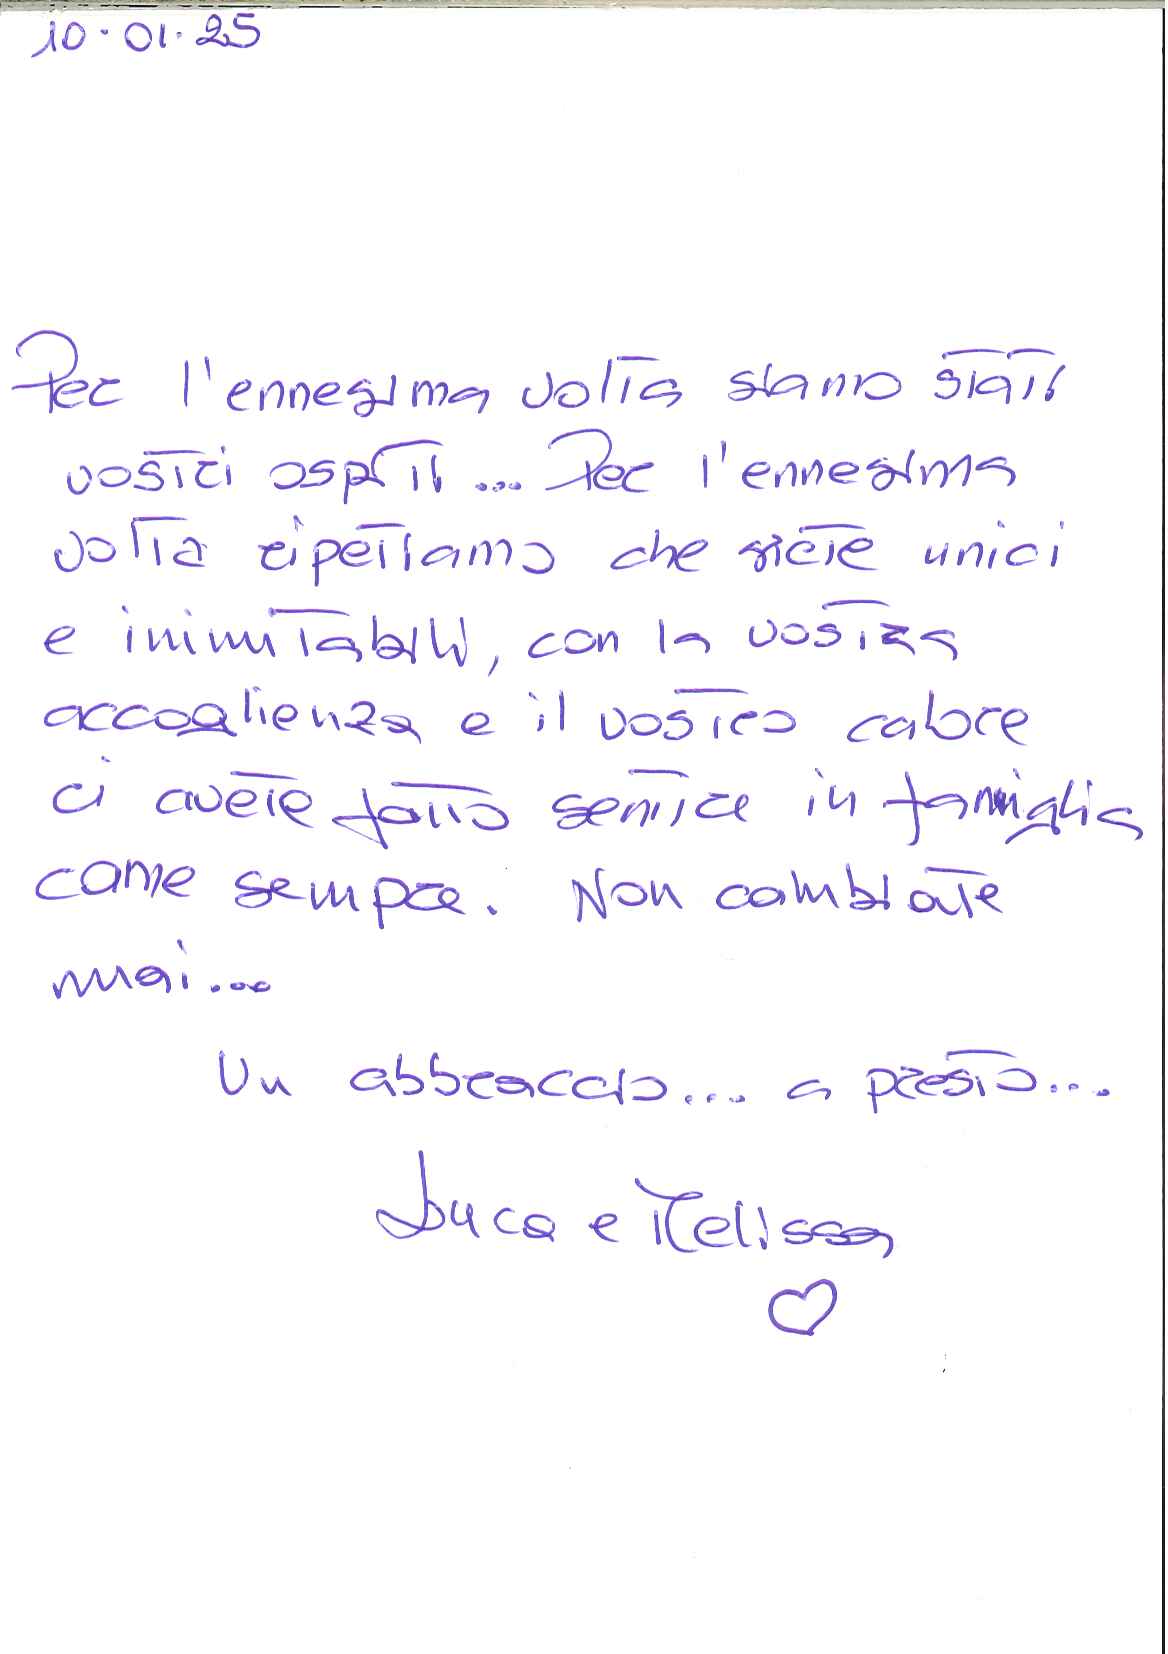 10.01.25
Per l'ennesima volta siamo stati
vostri ospiti... Per l'ennesima
volta ripetiamo che siete unici
e inimitabili, con la vostra
accoglienza e il vostro calore
ci avete fatto sentire in famiglia
come sempre. Non cambiate
mai...
Un abbraccio.... a presto...
Luca e Melissa
♡